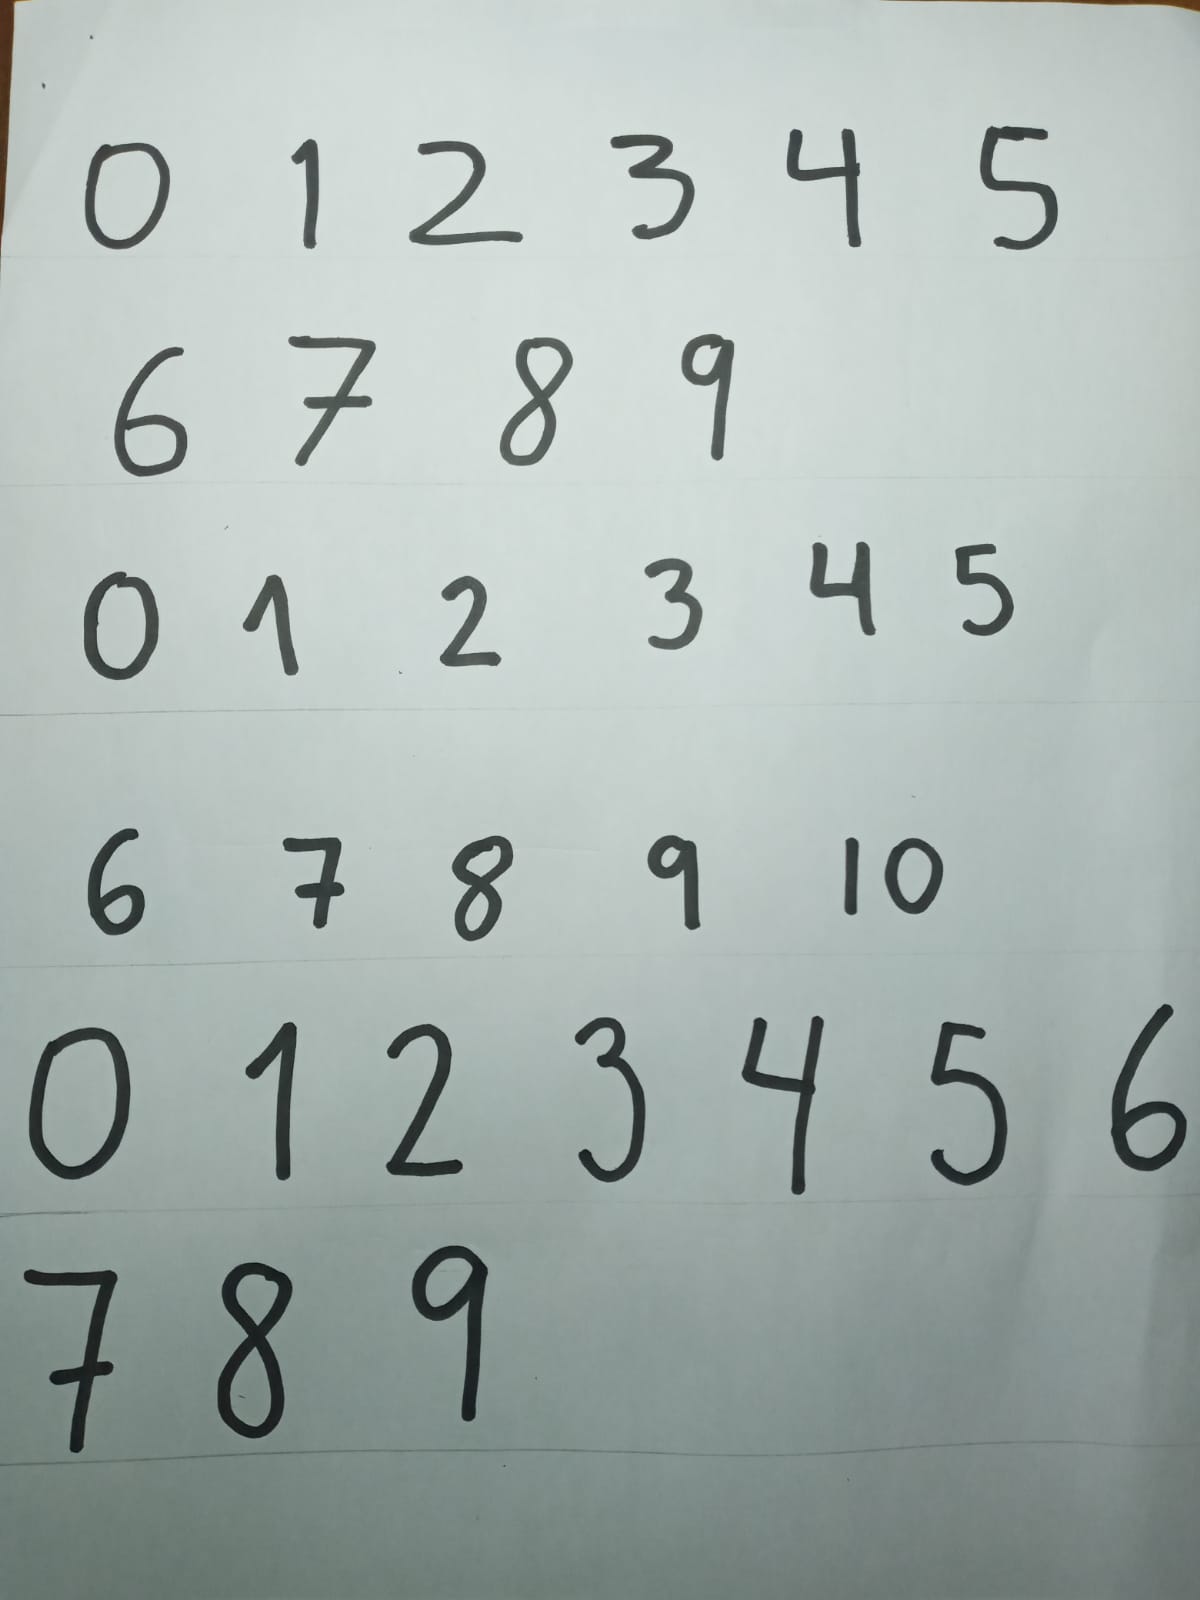 0 1 2 3 4 5
6 7 8 9
0 1 2 3 4 5
6 7 8 9 10
0 1 2 3 4 5 6
7 8 9